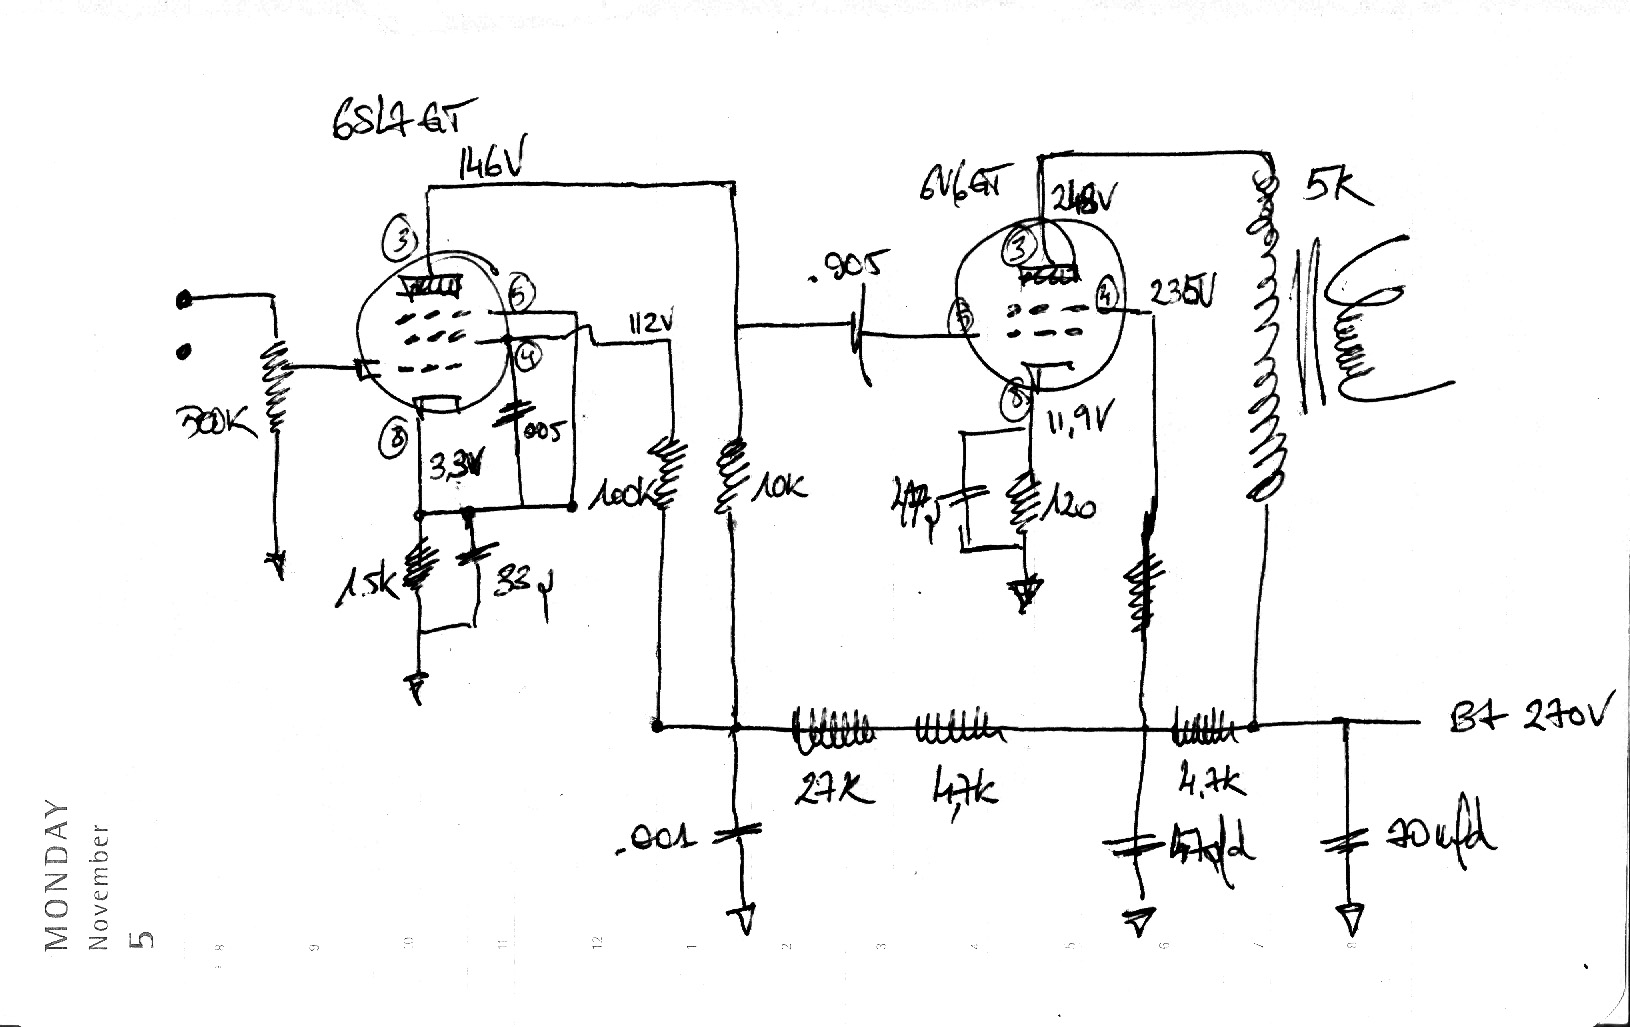 6SL7 GT
146V
6V6GT
248V
5K
3
3
5
.005
4
235V
112V
5
4
300K
8
11,9V
8
3,3V
.005
100K
10K
47µ
120
1.5K
33µ
B+ 270V
27K
4,7K
4,7K
.001
47µfd
20 µfd
MONDAY
November
5
8 9 10 11 12 1 2 3 4 5 6 7 8